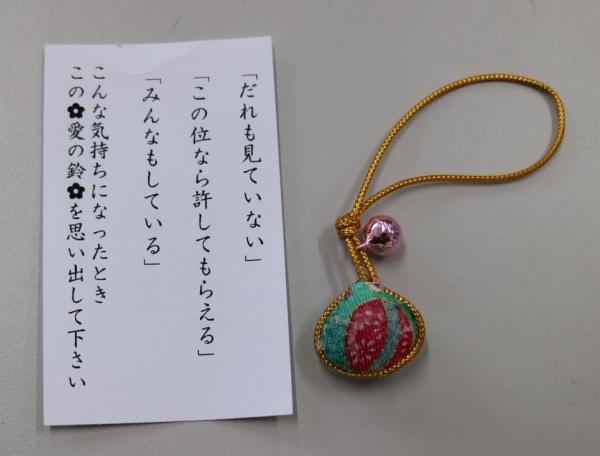 「だれも見ていない」
「この位なら許してもらえる」
「みんなもしている」
こんな気持ちになったとき
この✿愛の鈴✿を思い出して下さい